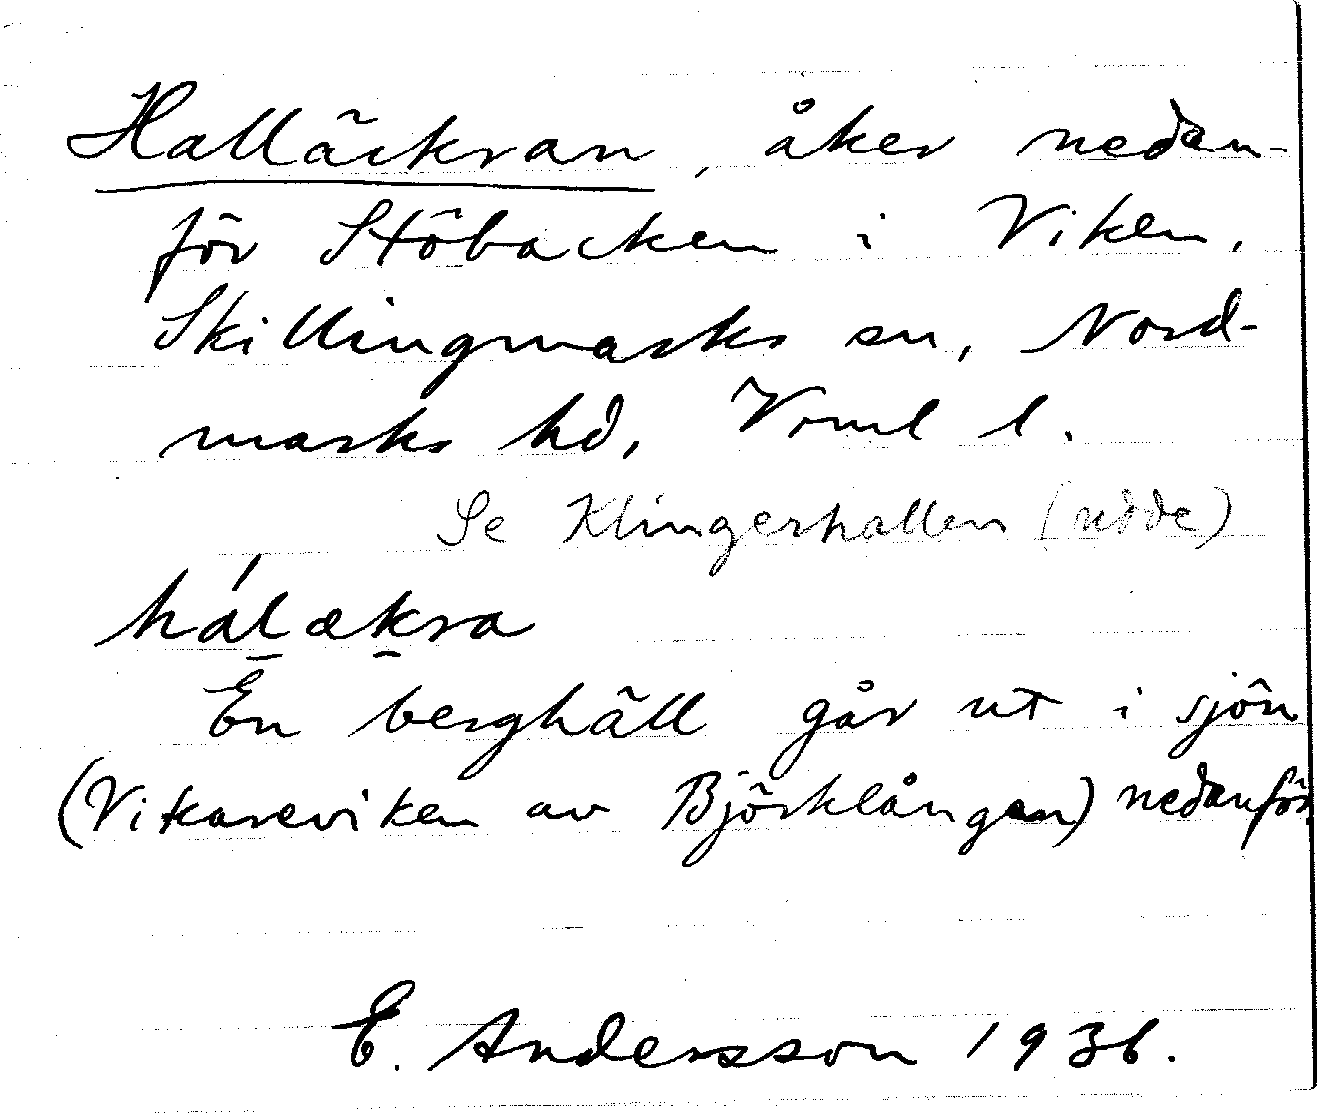 Halläckran, åker nedan-
för Stöbacken i Viken,
Skillingmarks sn, Nord-
marks hd, Vrml l.
Se Klingerhallen (udde)
hálækra
En berghäll går ut i sjön
(Vikareviken av Björklången) nedanför
E. Andersson 1936.